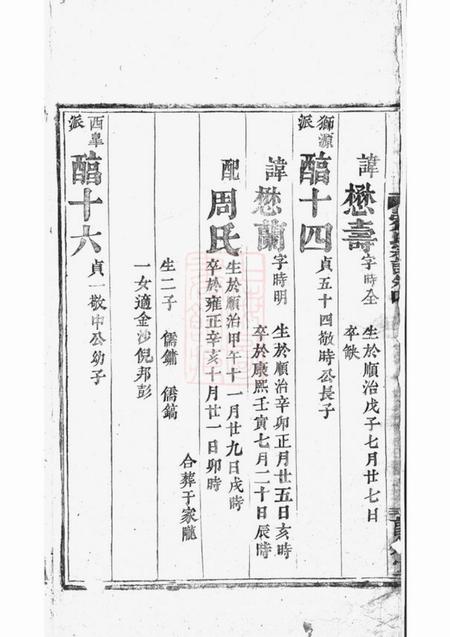 諱懋壽字時全 生於順治戊子七月廿七日
卒缺
獅源派
醕十四 貞五十四敬時公長子
諱懋蘭字時明 生於順治辛卯正月廿五日亥時
卒於康熙壬寅七月二十日辰時
配周氏 生於順治甲午十一月廿九日戌時
卒於雍正辛亥十月廿一日卯時
合葬于家隴
生二子 儒鏞 儒鎬
一女適金沙倪邦彭
西臯派
醕十六 貞一敬中公幼子